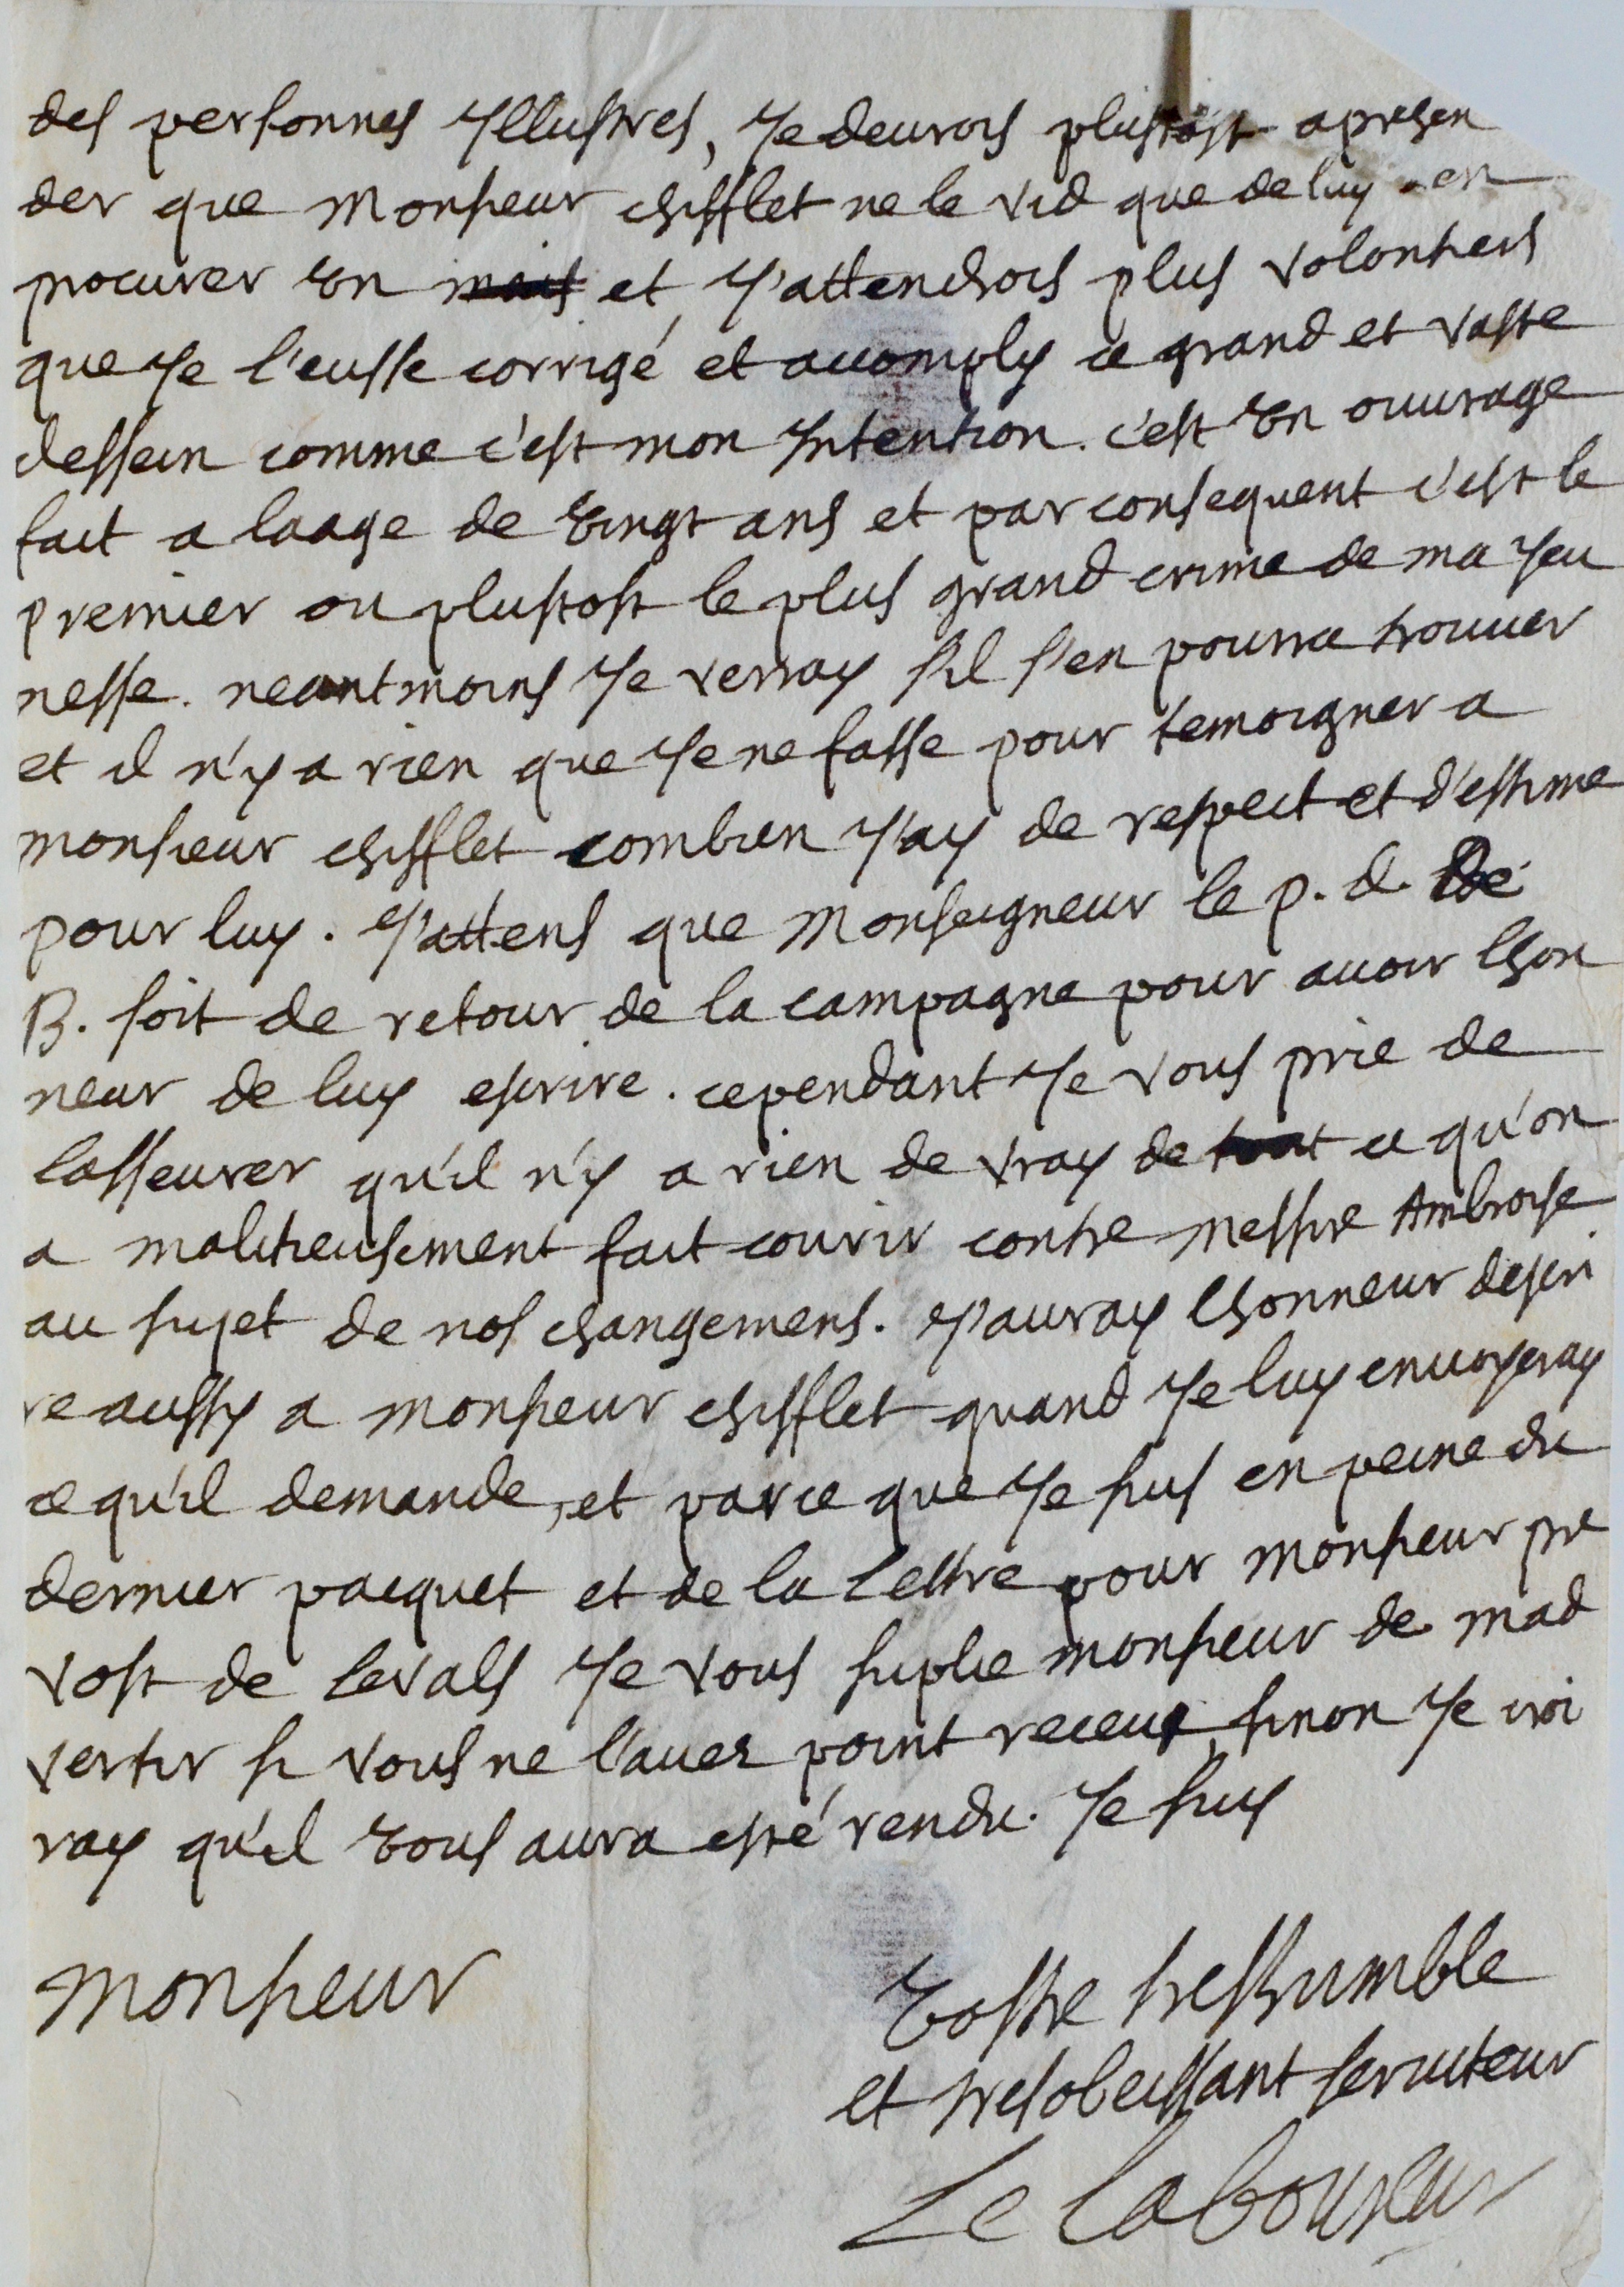 des personnes Illustres, Je deurois plustost aprehen
der que Monsieur chifflet ne le vid que de luy en
procurer Un mais et J'attendrois plus volontiers
que Je l'eusse corrigé et accomply ce grand et vaste
dessein comme c'est mon Intention. c'est Un ouurage
fait a laage de Vingt ans et par consequent c'est le
premier ou plustost le plus grand crime de ma Jeu
nesse. neantmoins Je verray s'il s'en pourra trouuer
et il n'y a rien que Je ne fasse pour temoigner a
monsieur chifflet combien J'ay de respect et d'estime
pour luy. J'attens que Monseigneur le p. d. De
B. soit de retour de la campagne pour auoir lhon
neur de luy escrire. cependant Je vous prie de
lasseurer qu'il n'y a rien de vray de tout ce qu'on
a malitieusement fait courir contre Messire Ambroise
au sujet de nos changemens. J'auray lhonneur descri
re aussy a monsieur chifflet quand Je luy enuoyeray
ce qu'il demande, et parce que Je suis en peine du
dernier pacquet et de la Lettre pour Monsieur pre
vost de levals Je vous suplie monsieur de mad
vertir si vous ne l'auez point receue, sinon Je croi
ray qu'il Vous aura esté rendu. Je suis
Monsieur
Vostre treshumble
et tresobeissant seruiteur
Le Laboureur